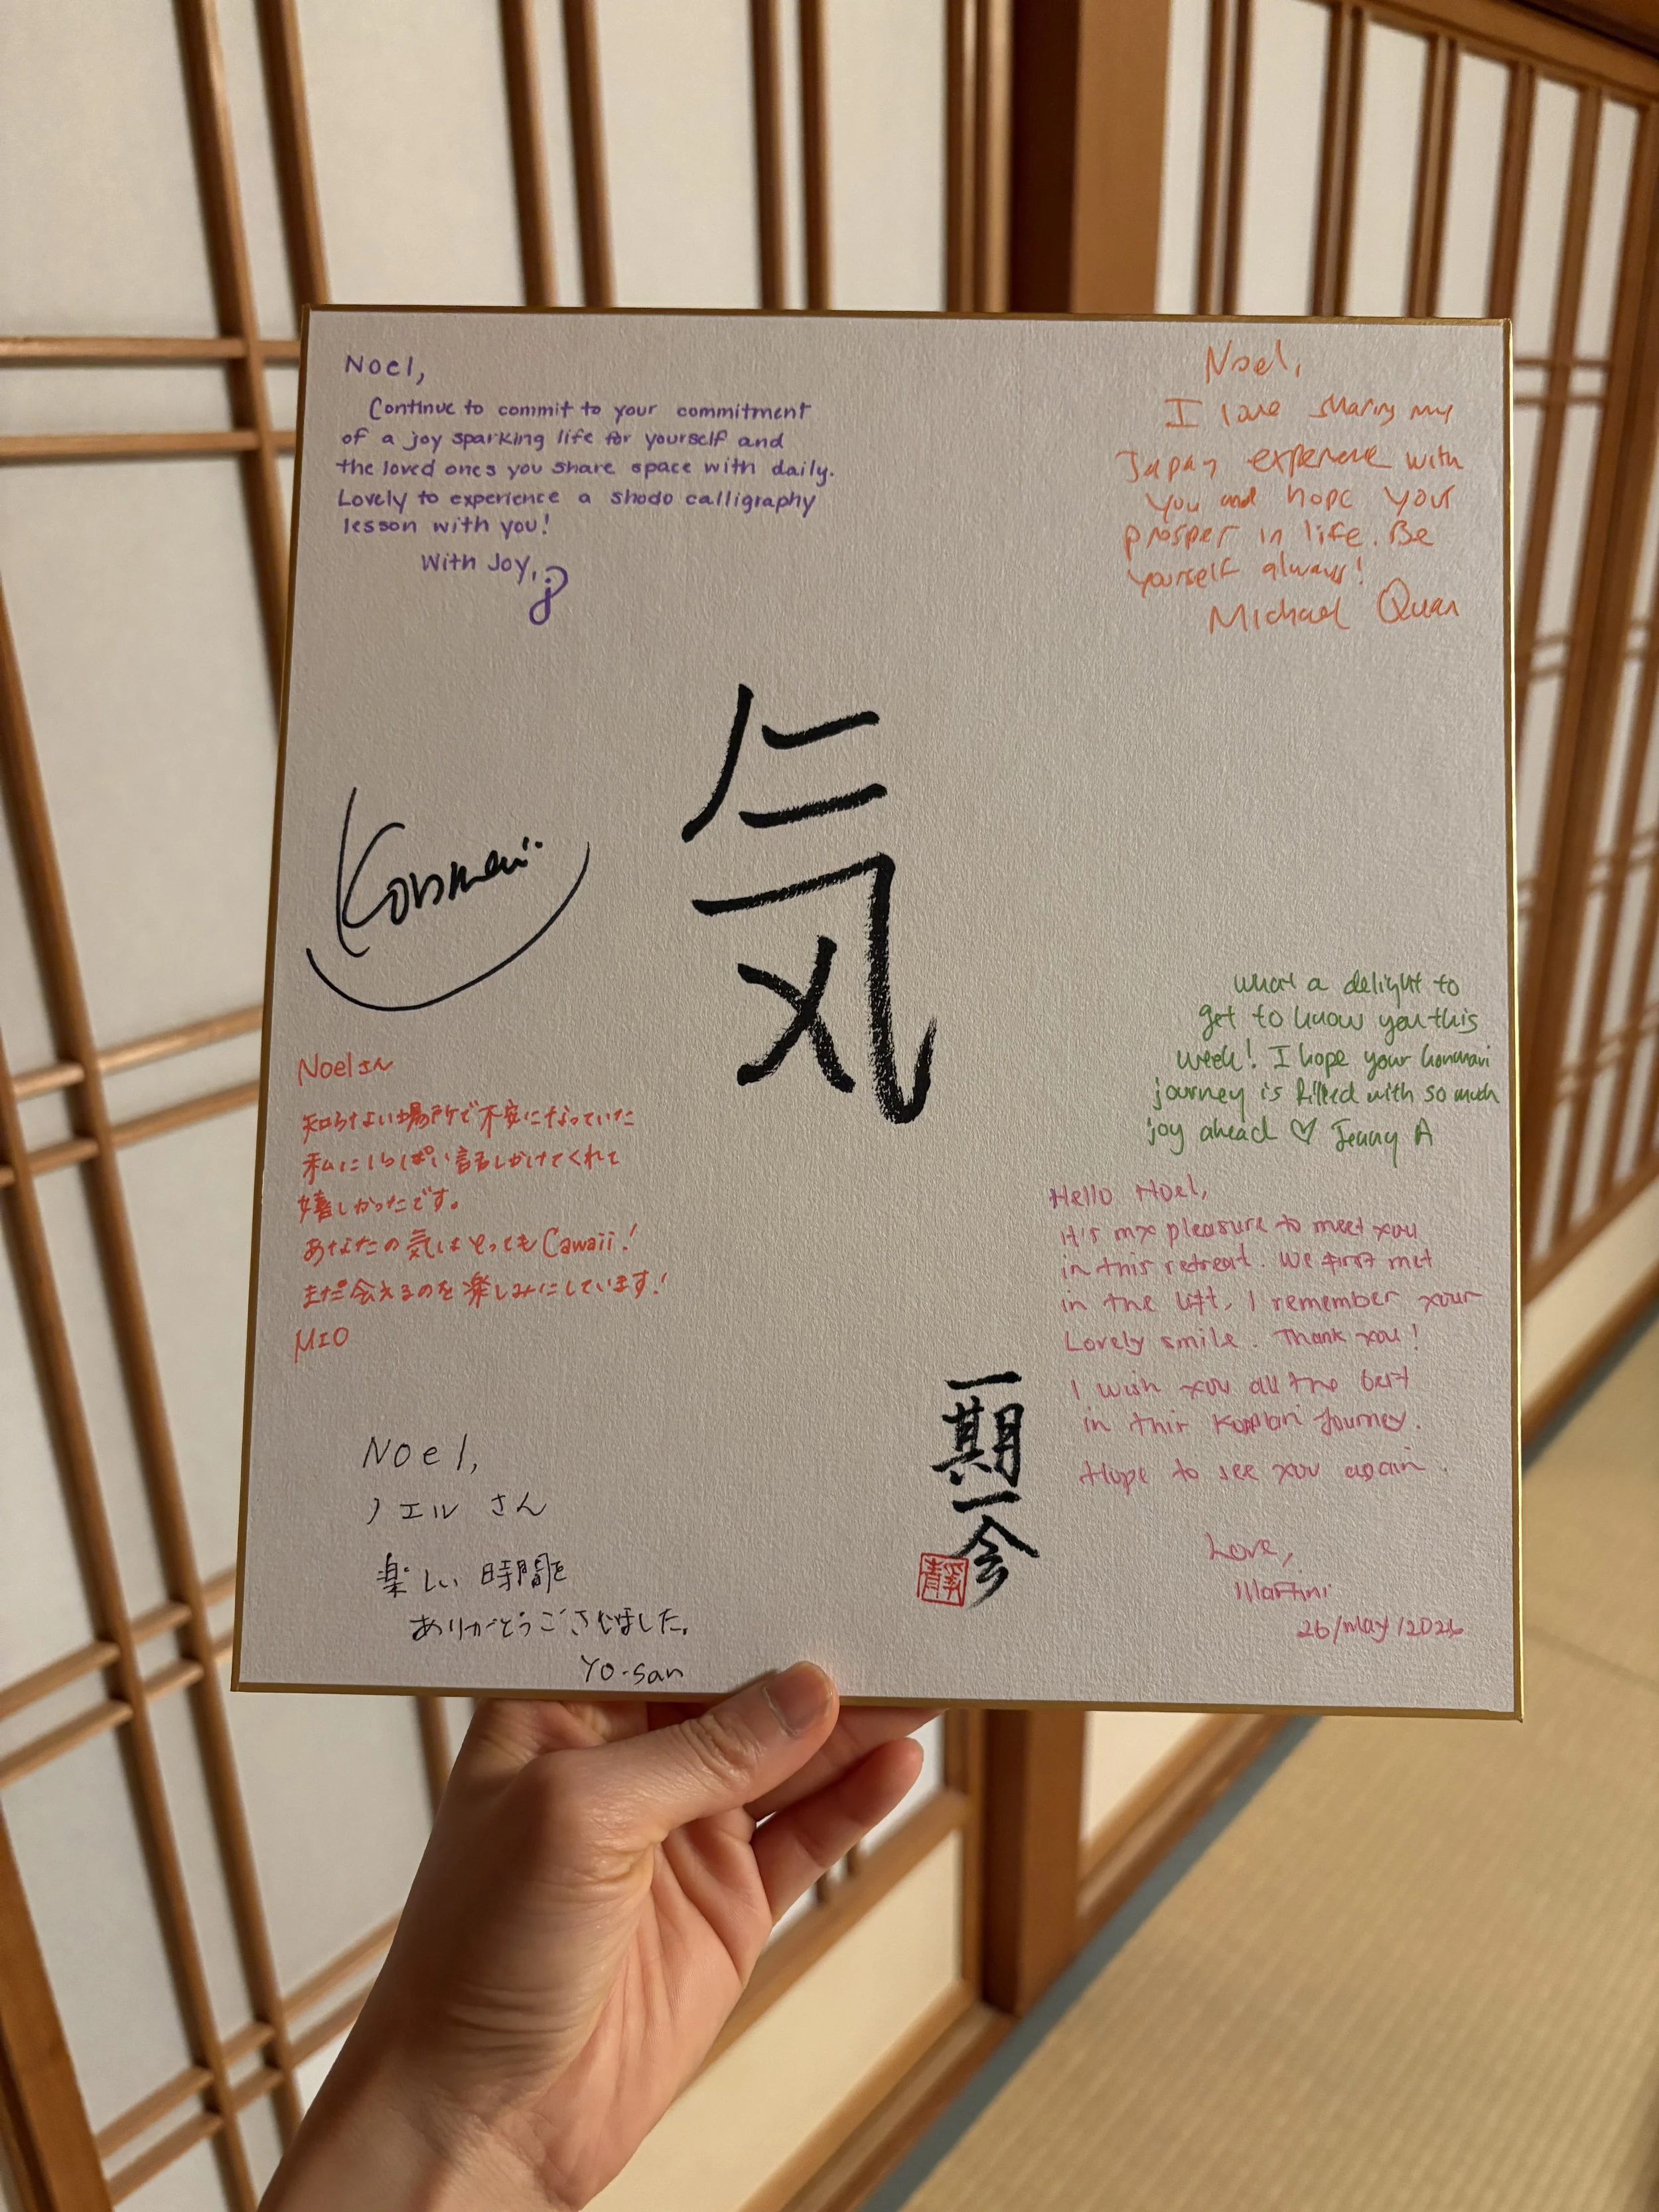 Noel,
Continue to commit to your commitment
of a joy sparking life for yourself and
the loved ones you share space with daily.
Lovely to experience a shodo calligraphy
lesson with you!
With Joy, j
Noel,
I love sharing my
Japan experience with
you and hope your
prosper in life. Be
yourself always!
Michael Quan
気
Konmari
what a delight to
get to know you this
week! I hope your konmari
journey is filled with so much
joy ahead ♡ Jenny A
Noelさん
知らない場所で不安になっていた
私にいっぱい話しかけてくれて
嬉しかったです。
あなたの気はとってもCawaii!
また会えるのを楽しみにしています!
MIO
Hello Noel,
it's my pleasure to meet you
in this retreat. We first met
in the lift, I remember your
Lovely smile. Thank you!
I wish you all the best
in this KonMari Journey.
Hope to see you again.
Love,
Martini
26/May/2026
Noel,
ノエル さん
楽しい 時間を
ありがとうございました。
Yo-san
一期一会